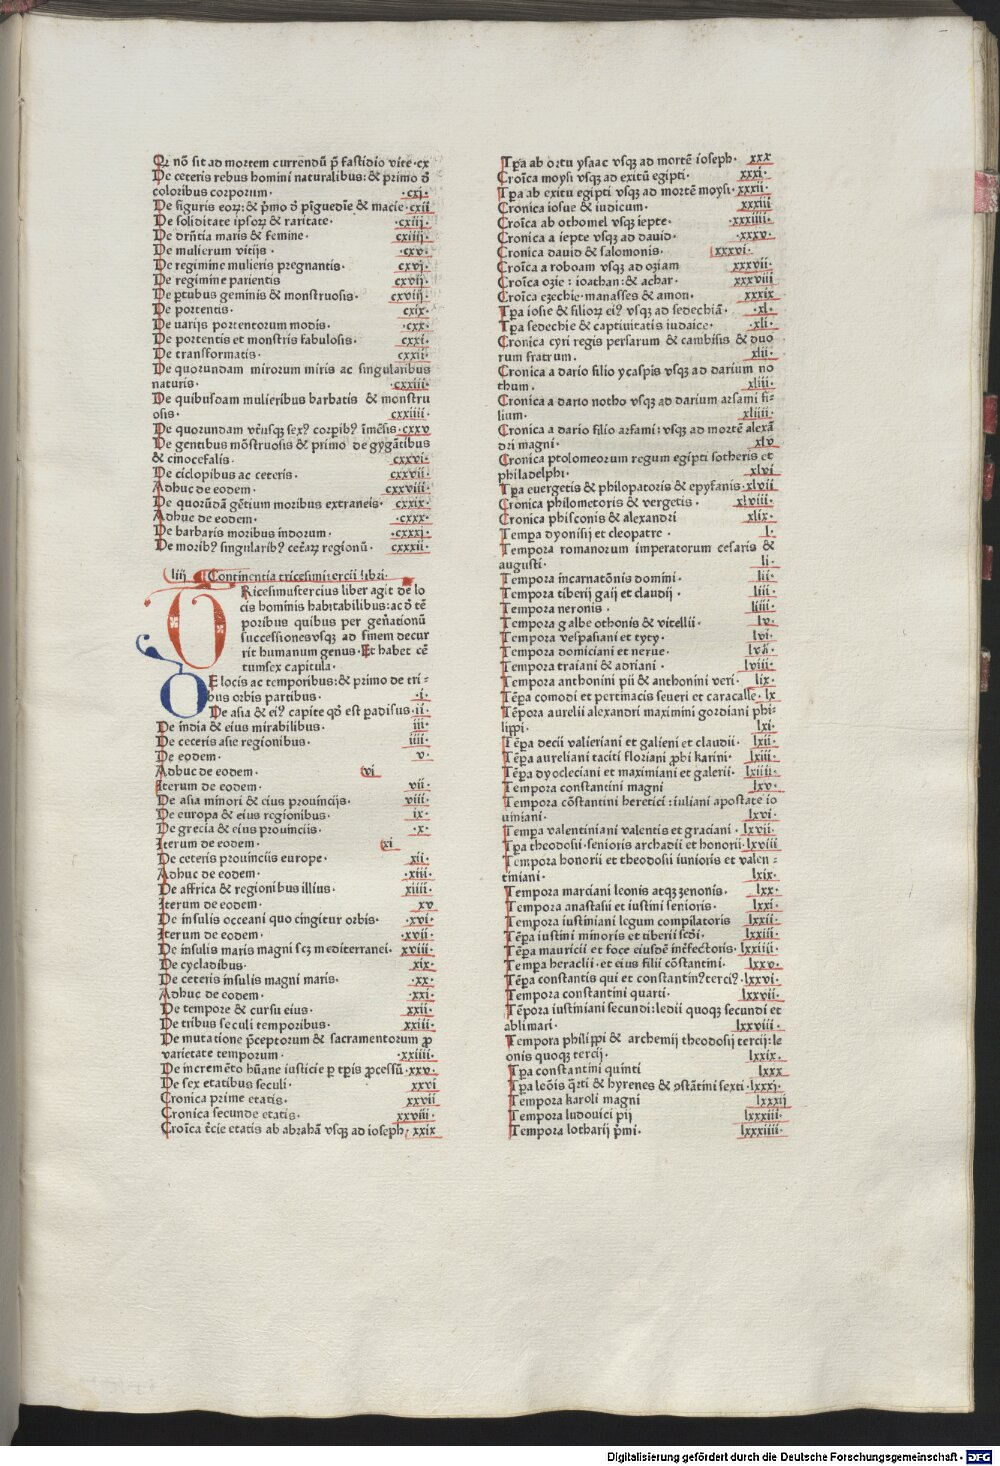 Qr̃ nõ sit ad mortem currendũ p̃ fastidio vite·cx
De ceteris rebus homini naturalibus: & primo ð
coloribus corporum· ·cxj·
De figuris eoꝝ: & p̃mo ð pĩguedĩe & macie·cxii
De soliditate ipsoꝝ & raritate· ·cxiij·
De dr̃ñtia maris & femine· cxiiij·
De mulierum vitijs · ·cxv·
De regimine mulieris pregnantis· cxvj·
De regimine parientis cxvij·
De ꝑtubus geminis & monstruosis· ·cxviij·
De portentis· cxix·
De varijs portentorum modis· ·cxx·
De portentis et monstris fabulosis· cxxi·
De transformatis· cxxii·
De quorundam mirorum miris ac singularibus
naturis· ·cxxiii·
De quibusdam mulieribus barbatis & monstru
osis· cxxiiii·
De quorundam vtẽusqꝫ sexꝰ corꝑibꝰ ĩmẽsis·cxxv
De gentibus mõstruosis & primo de gygãtibus
& cinocefalis· cxxvi·
De ciclopibus ac ceteris· cxxvii·
Adhuc de eodem· cxxviii·
De quorũdã gẽtium moribus extraneis· cxxix·
Adhuc de eodem· ·cxxx·
De barbaris moribus indorum· ·cxxxj·
De moribꝰ singularibꝰ cetãꝝ regionũ· cxxxii·
liij Continentia tricesimitercii libri·
TRicesimustercius liber agit de lo
cis hominis habitabilibus: ac ð tẽ
poribus quibus per geñationũ
successionesvsqꝫ ad finem decur
rit humanum genus· Et habet cẽ
tumsex capitula·
DE locis ac temporibus: & primo de tri⸗
bus orbis partibus· ·i·
De asia & eiꝰ capite qð est ꝑadisus·ii·
De india & eius mirabilibus· iii·
De ceceris asie regionibus· iiii·
De eodem· v·
Adhuc de eodem· vi
Iterum de eodem· vii·
De asia minori & eius prouincijs· viii·
De europa & eius regionibus· ix·
De grecia & eius prouinciis· ·x·
Iterum de eodem· xi
De ceteris prouinciis europe· xii·
Adhuc de eodem· ·xiii·
De affrica & regionibus illius· xiiii·
Iterum de eodem· xv
De insulis occeani quo cingitur orbis· ·xvi·
Iterum de eodem· ·xvii·
De insulis maris magni scꝫ mediterranei· xviii·
De cycladibus· xix·
De ceteris insulis magni maris· ·xx·
Adhuc de eodem· ·xxi·
De tempore & cursu eius· xxii·
De tribus seculi temporibus· xxiii·
De mutatione p̃ceptorum & sacramentorum ꝓ
varietate temporum· ·xxiiii·
De incremẽto hũane iusticie ꝑ tꝑis ꝓcessũ·xxv·
De sex etatibus seculi· xxvi
Cronica prime etatis· xxvii
Cronica secunde etatis· xxviii·
Croĩca t̃cie etatis ab abrahã vsqꝫ ad ioseph· xxix
Tꝑa ab ortu ysaac vsqꝫ ad mortẽ ioseph· xxx
Croĩca moysi vsqꝫ ad exitũ egipti· xxxi·
Tꝑa ab exitu egipti vsqꝫ ad mortẽ moysi·xxxii·
Cronica iosue & iudicum· xxxiii
Croĩca ab othomel vsqꝫ iepte· ·xxxiiii·
Cronica a iepte vsqꝫ ad dauid· ·xxxv·
Cronica dauid & salomonis· xxxvi·
Croĩca a roboam vsqꝫ ad oziam xxxvii·
Croĩca ozie : ioathan: & achar· xxxviii
Croĩca ezechie·manasses & amon· xxxix
Tꝑa iosie & filioꝝ eiꝰ vsqꝫ ad sedechiã· ·xl·
Tꝑa sedechie & captiuitatis iudaice· ·xli·
Cronica cyri regis persarum & cambisis & duo
rum fratrum· xlii·
Cronica a dario filio ycaspis vsqꝫ ad darium no
thum· xliii·
Cronica a dario notho vsqꝫ ad darium arsami fi⸗
lium· xliiii·
Cronica a dario filio arsami: vsqꝫ ad mortẽ alexã
dri magni· xlv
Cronica ptolomeorum regum egipti sotheris et
philadelphi· xlvi
Tꝑa euergetis & philopatoris & epyfanis·xlvii
Cronica philometoris & vergetis· xlviii·
Cronica phisconis & alexandri xlix·
Tempa dyonisij et cleopatre · l·
Tempora romanorum imperatorum cesaris &
augusti· li·
Tempora incarnatõnis domini· lii·
Tempora tiberij gaij et claudij · liii·
Tempora neronis · liiii·
Tempora galbe othonis & vitellii· lv·
Tempora vespasiani et tyty· lvi·
Tempora domiciani et nerue· lvii·
Tempora traiani & adriani · lviii·
Tempora anthonini pii & anthonini veri· lix·
Tẽꝑa comodi et pertinacis seueri et caracalle·lx
Tẽpora aurelii alexandri maximini gordiani phi⸗
lippi· lxi·
Tẽꝑa decii valieriani et galieni et claudii· lxii·
Tẽꝑa aureliani taciti floriani ꝓbi karini· lxiii·
Tẽꝑa dyocleciani et maximiani et galerii· lxiiii·
Tempora constantini magni lxv·
Tempora cõstantini heretici : iuliani apostate io
uiniani· lxvi·
Tempa valentiniani valentis et graciani · lxvii·
Tꝑa theodosii·senioris archadii et honorii·lxviii
Tempora honorii et theodosii iunioris et valen⸗
tiniani· lxix·
Tempora marciani leonis atqꝫ zenonis· lxx·
Tempora anastasii et iustini senioris· lxxi·
Tempora iustiniani legum compilatoris lxxii·
Tẽꝑa iustini minoris et tiberii scðĩ· lxxiii·
Tẽꝑa mauricii et foce eiusdẽ inẽfectoris·lxxiiii·
Tempa heraclii·et eius filii cõstantini· lxxv·
Tẽꝑa constantis qui et constantinꝰterciꝰ·lxxvi·
Tempora constantini quarti· ·lxxvii·
Tẽpora iustiniani secundi: ledii quoqꝫ secundi et
ablimari· lxxviii·
Tempora philippi & archemij theodosij tercij: le
onis quoqꝫ tercij· lxxix·
Tꝑa constantini quinti lxxx
Tꝑa leõis q̃rti & hyrenes & ꝯstãtini sexti·lxxxj·
Tempora karoli magni lxxxij
Tempora ludouici pij lxxxiii·
Tempora lotharij p̃mi· lxxxiiii·
Digitalisierung gefördert durch die Deutsche Forschungsgemeinschaft - DFG